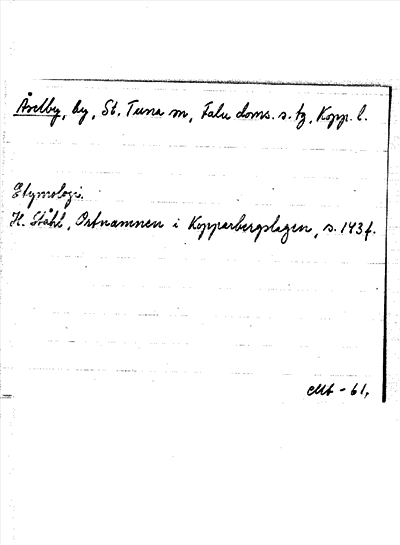 Åselby, by, St. Tuna sn, Falu doms. s. tg, Kopp. l.
Etymologi.
H. Ståhl, Ortnamnen i Kopparbergslagen, s. 143 f.
-61.